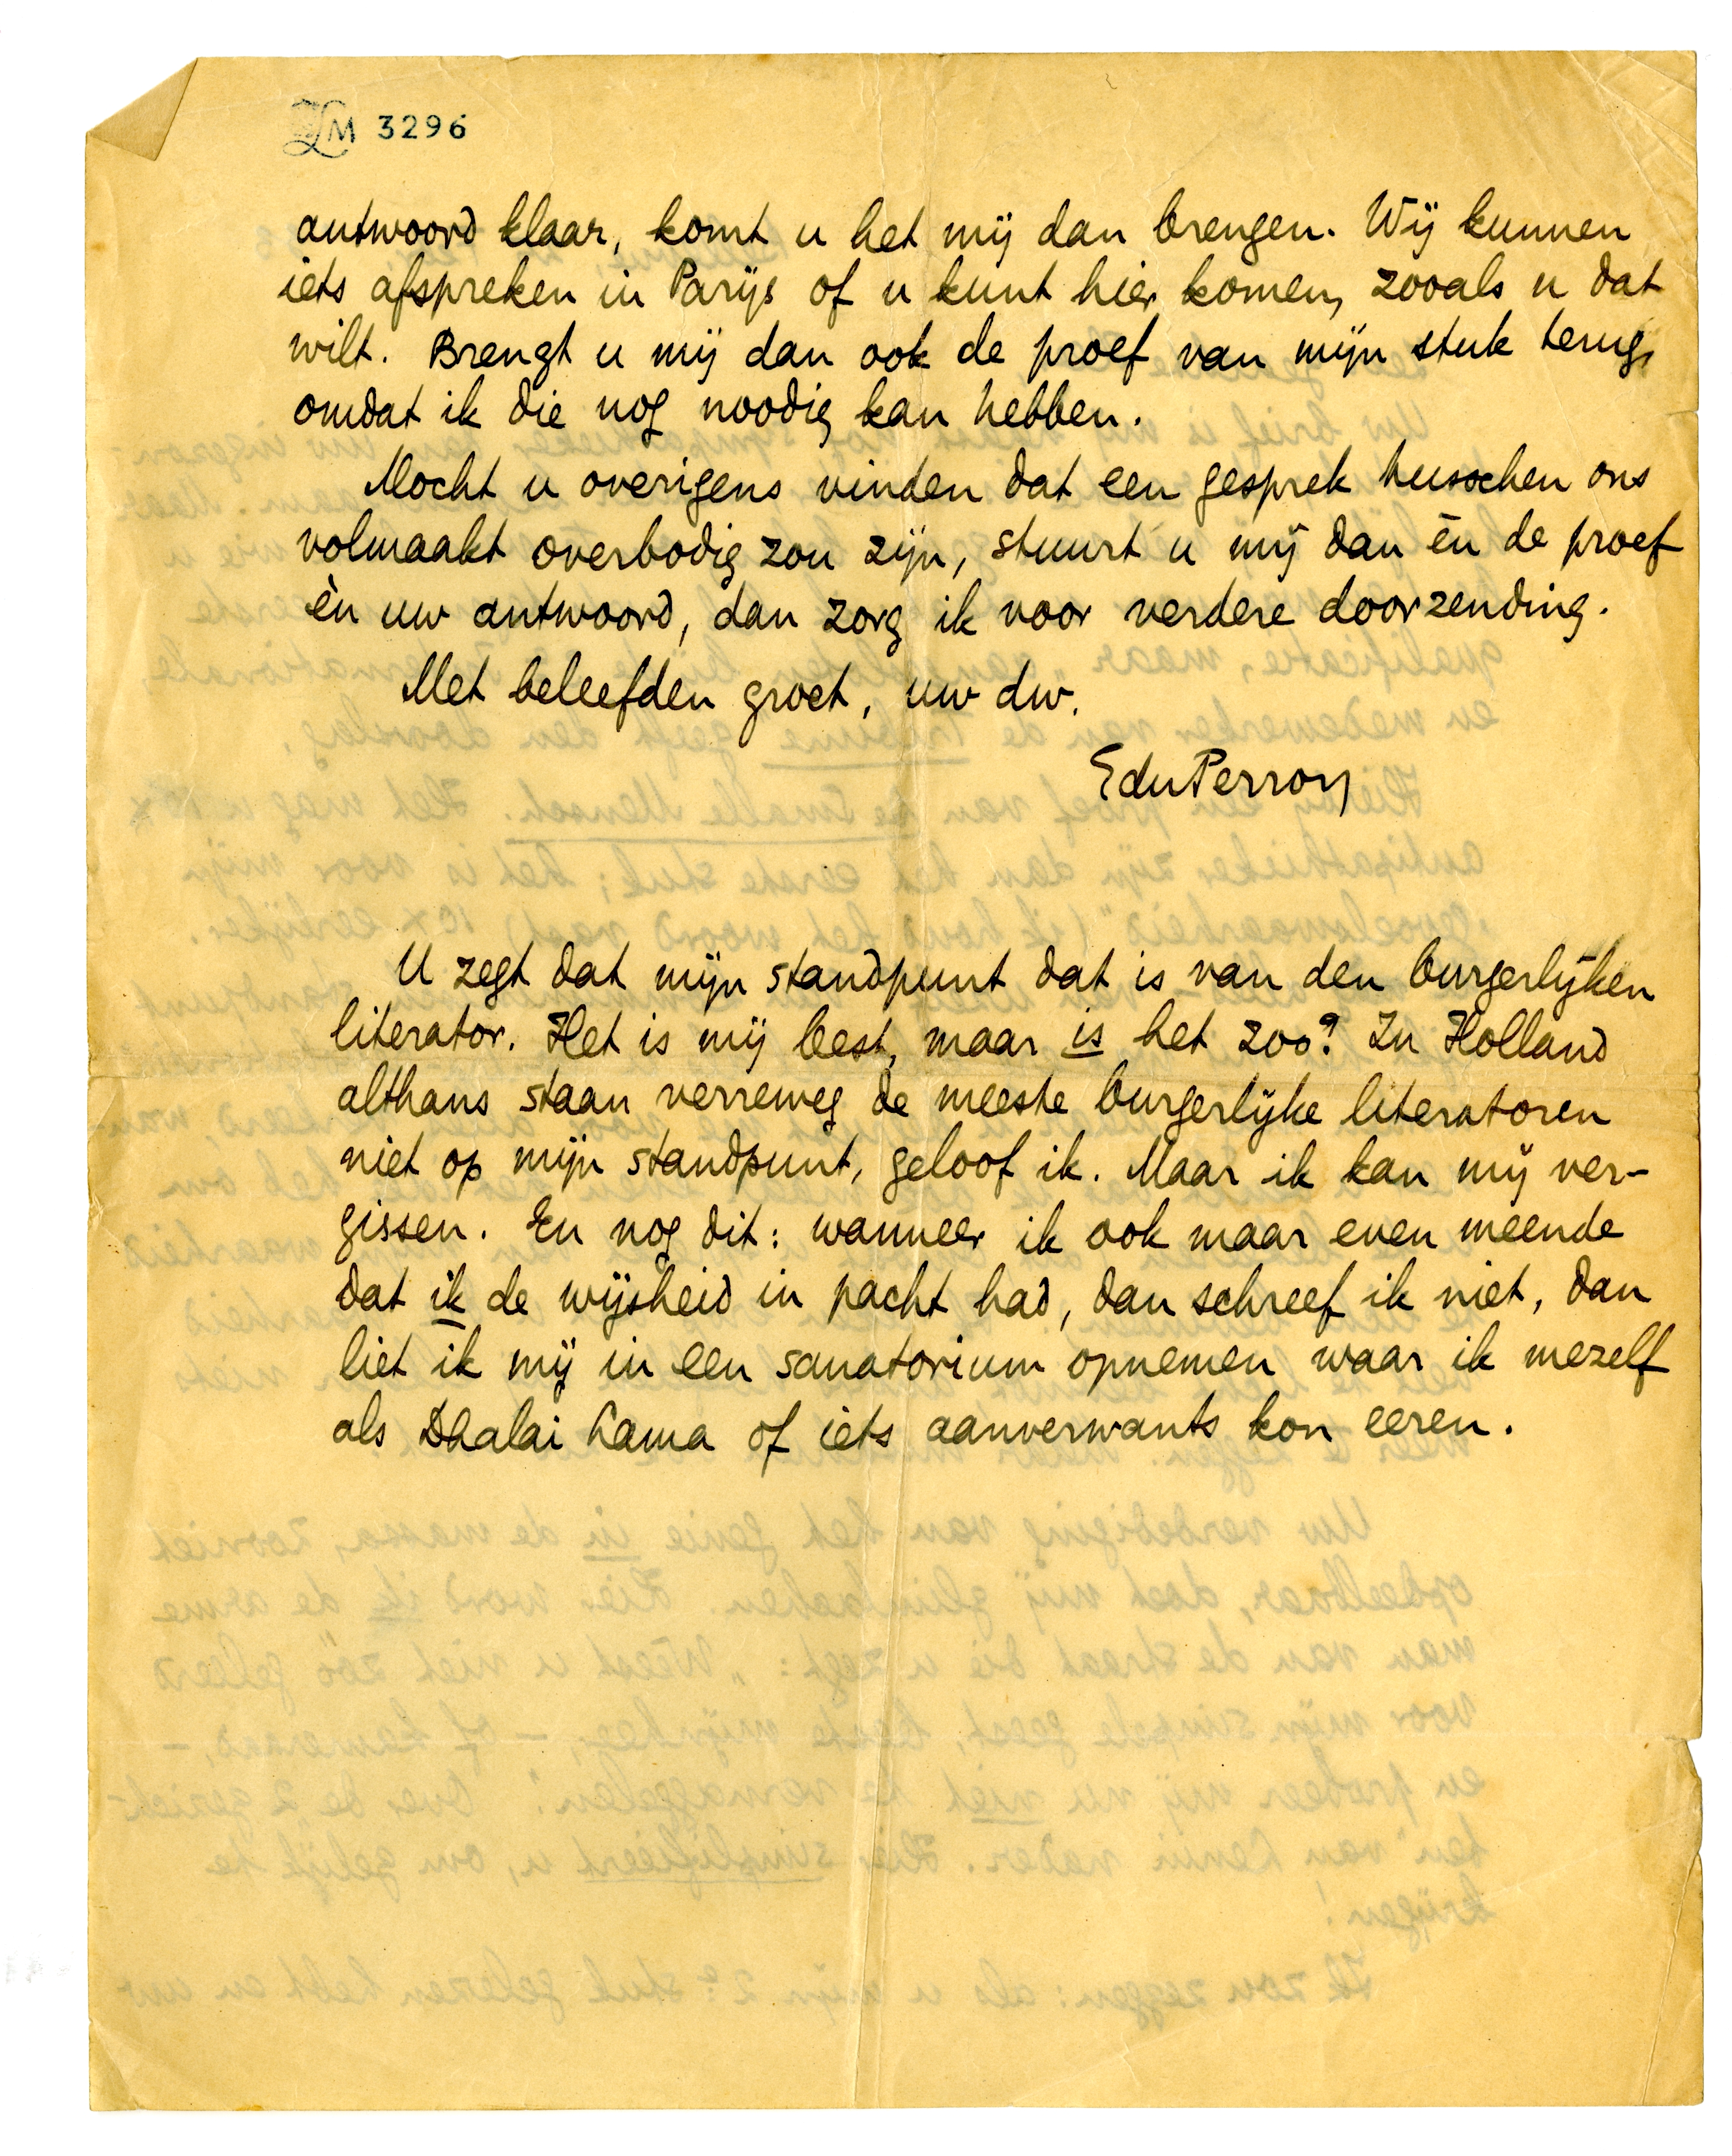 LM 3296
antwoord klaar, komt u het mij dan brengen. Wij kunnen
iets afspreken in Parijs of u kunt hier komen, zooals u dat
wilt. Brengt u mij dan ook de proef van mijn stuk terug,
omdat ik die nog noodig kan hebben.
Mocht u overigens vinden dat een gesprek tusschen ons
volmaakt overbodig zou zijn, stuurt u mij dan èn de proef
èn uw antwoord, dan zorg ik voor verdere doorzending.
Met beleefden groet, uw dw.
EduPerron
U zegt dat mijn standpunt dat is van den burgerlijken
literator. Het is mij best, maar is het zoo? In Holland
althans staan verreweg de meeste burgerlijke literatoren
niet op mijn standpunt, geloof ik. Maar ik kan mij ver-
gissen. En nog dit: wanneer ik ook maar even meende
dat ik de wijsheid in pacht had, dan schreef ik niet, dan
liet ik mij in een sanatorium opnemen waar ik mezelf
als Dhalai Lama of iets aanverwants kon eeren.